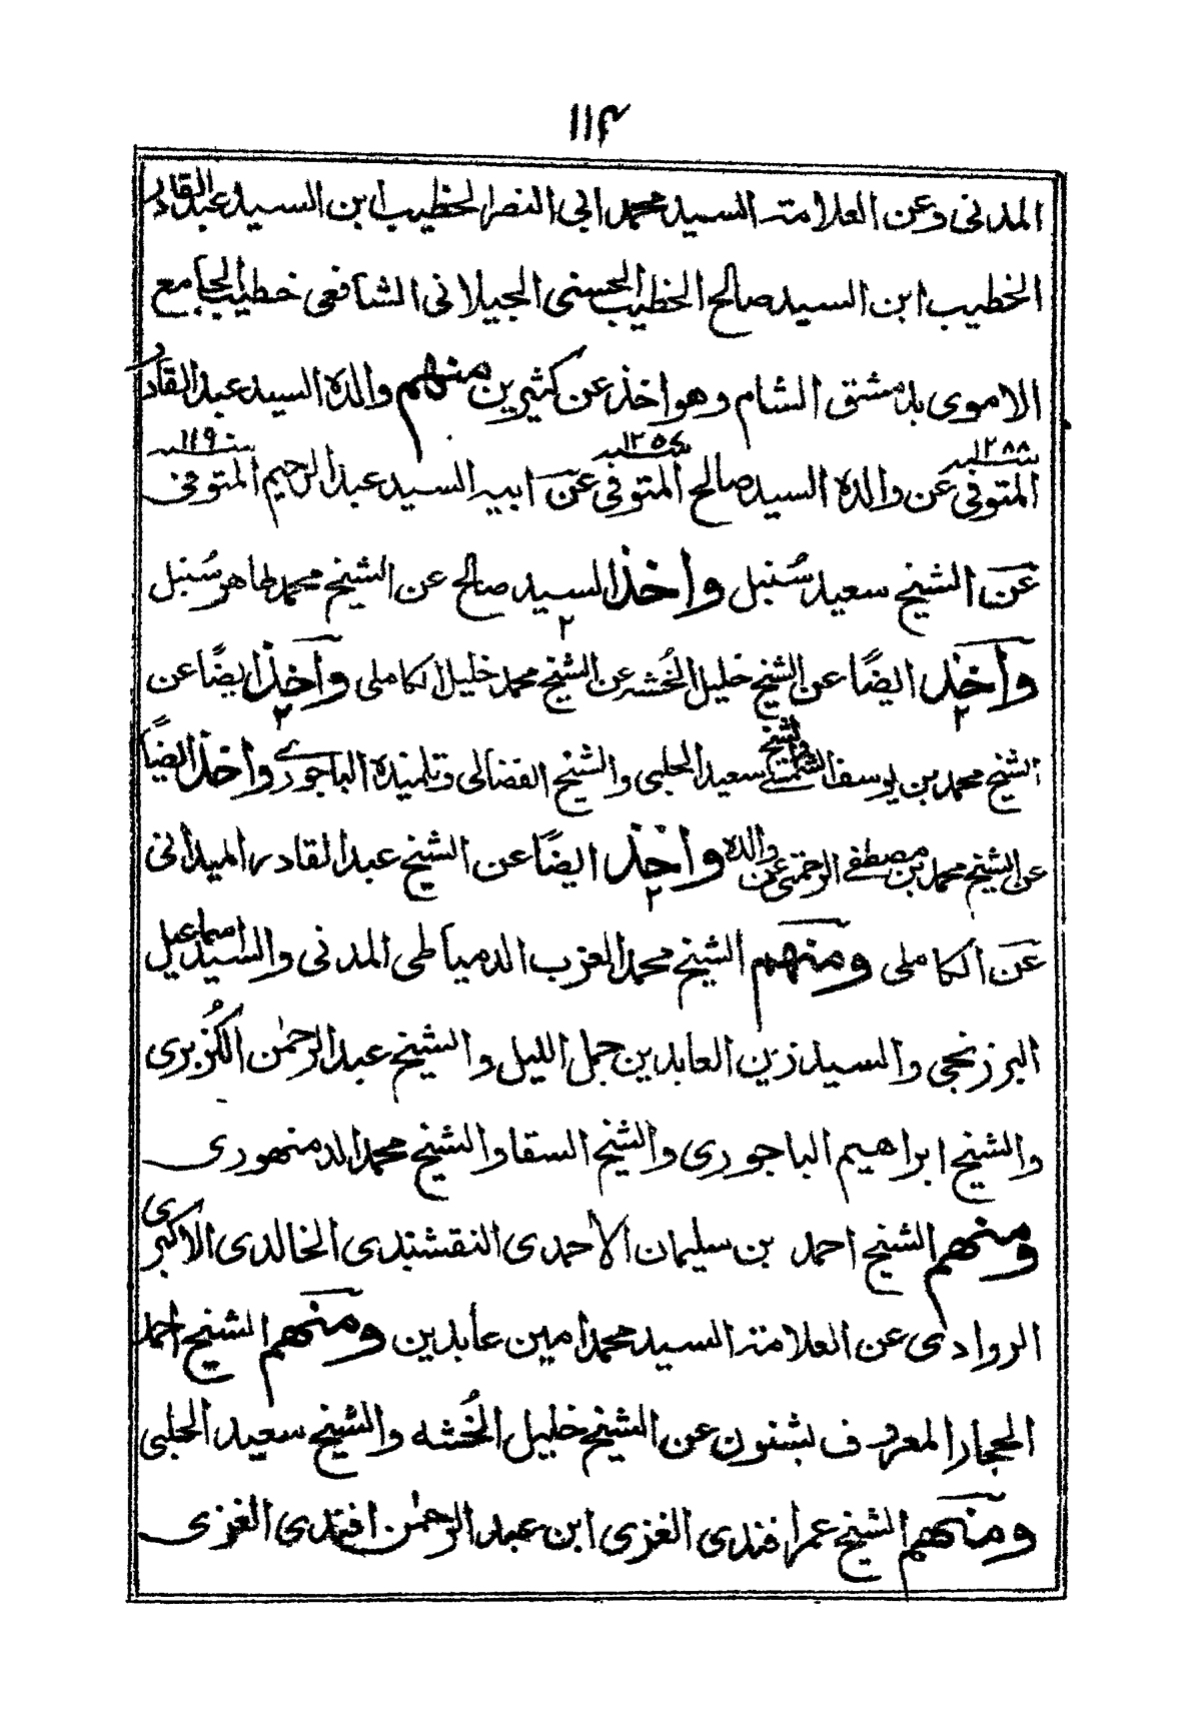 ۱۱۴
المدنى وعن العلامة السيد محمد ابى النصر الخطيب ابن السيد عبد القادر
الخطيب ابن السيد صالح الخطيب الحسنى الجيلانى الشافعى خطيب الجامع
الاموى بدمشق الشام وهو اخذ عن كثيرين منهم والده السيد عبد القادر
المتوفى سنة ١٢٨٨ عن والده السيد صالح المتوفى سنة ١٢٥٤ عن ابيه السيد عبد الرحيم المتوفى سنة ١١٩٠
عن الشيخ سعيد سُنبل واخذ السيد صالح عن الشيخ محمد طاهر سُنبل
واخذ ٢ ايضًا عن الشيخ خليل الخُشه عن الشيخ محمد خليل الكاملى واخذ ٢ ايضًا عن
الشيخ محمد بن يوسف والشيخ سعيد الحلبى والشيخ الفضالى وتلميذه الباجورى واخذ ايضًا
عن الشيخ محمد بن مصطفى الرحمتى عن والده واخذ ٢ ايضًا عن الشيخ عبد القادر الميدانى
عن الكاملى ومنهم الشيخ محمد العزب الدمياطى المدنى والسيد اسماعيل
البرزنجى والسيد زين العابدين جمل الليل والشيخ عبد الرحمٰن الكُزبرى
والشيخ ابراهيم الباجورى والشيخ السقا والشيخ محمد الدمنهورى
ومنهم الشيخ احمد بن سليمان الاحمدى النقشبندى الخالدى الاكبرى
الروادى عن العلامة السيد محمد امين عابدين ومنهم الشيخ احمد
الحجار المعروف بشنون عن الشيخ خليل الخُشه والشيخ سعيد الحلبى
ومنهم الشيخ عمر افندى الغزى ابن عبد الرحمٰن افندى الغزى